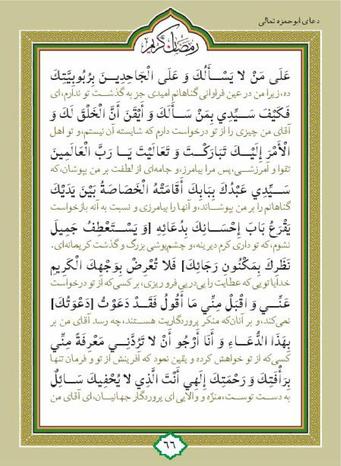 دعای ابوحمزه ثمالی
رمضان کریم
عَلَى مَنْ لَا يَسْأَلُكَ وَ عَلَى الْجَاحِدِينَ بِرُبُوبِيَّتِكَ
ده، زیرا من در عین فراوانی گناهانم امیدی جز به گذشت تو ندارم، ای
فَكَيْفَ سَيِّدِي بِمَنْ سَأَلَكَ وَ أَيْقَنَ أَنَّ الْخَلْقَ لَكَ وَ
آقای من چیزی را از تو درخواست دارم که شایسته آن نیستم، و تو اهل
الْأَمْرَ إِلَيْكَ تَبَارَكْتَ وَ تَعَالَيْتَ يَا رَبَّ الْعَالَمِينَ
تقوا و آمرزشی، پس مرا بیامرز، و جامه‌ای از لطفت بر من بپوشان، که
سَيِّدِي عَبْدُكَ بِبَابِكَ أَقَامَتْهُ الْخَصَاصَةُ بَيْنَ يَدَيْكَ
گناهانم را بر من بپوشاند، و آنها را بیامرزی و نسبت به آنه بازخواست
يَقْرَعُ بَابَ إِحْسَانِكَ بِدُعَائِهِ [وَ يَسْتَعْطِفُ جَمِيلَ
نشوم، که تو داری کرم دیرینه، و چشم‌پوشی بزرگ و گذشت کریمانه‌ای.
نَظَرِكَ بِمَكْنُونِ رَجَائِكَ] فَلَا تُعْرِضْ بِوَجْهِكَ الْكَرِيمِ
خدایا تویی که عطایت را پی در پی فرو ریزی، بر کسی‌که از تو درخواست
عَنِّي وَ اقْبَلْ مِنِّي مَا أَقُولُ فَقَدْ دَعَوْتُ [دَعَوْتُكَ]
نمی‌کند، و بر آنان‌که منکر پروردگاریت هستند، چه رسد آقای من بر
بِهَذَا الدُّعَاءِ وَ أَنَا أَرْجُو أَنْ لَا تَرُدَّنِي مَعْرِفَةً مِنِّي
کسی‌که از تو خواهش کرده و یقین نمود که آفرینش از تو و فرمان تنها
بِرَأْفَتِكَ وَ رَحْمَتِكَ إِلَهِي أَنْتَ الَّذِي لَا يُحْفِيكَ سَائِلٌ
به دست توست، منزّه و والایی ای پروردگار جهانیان، ای آقای من
٦٦